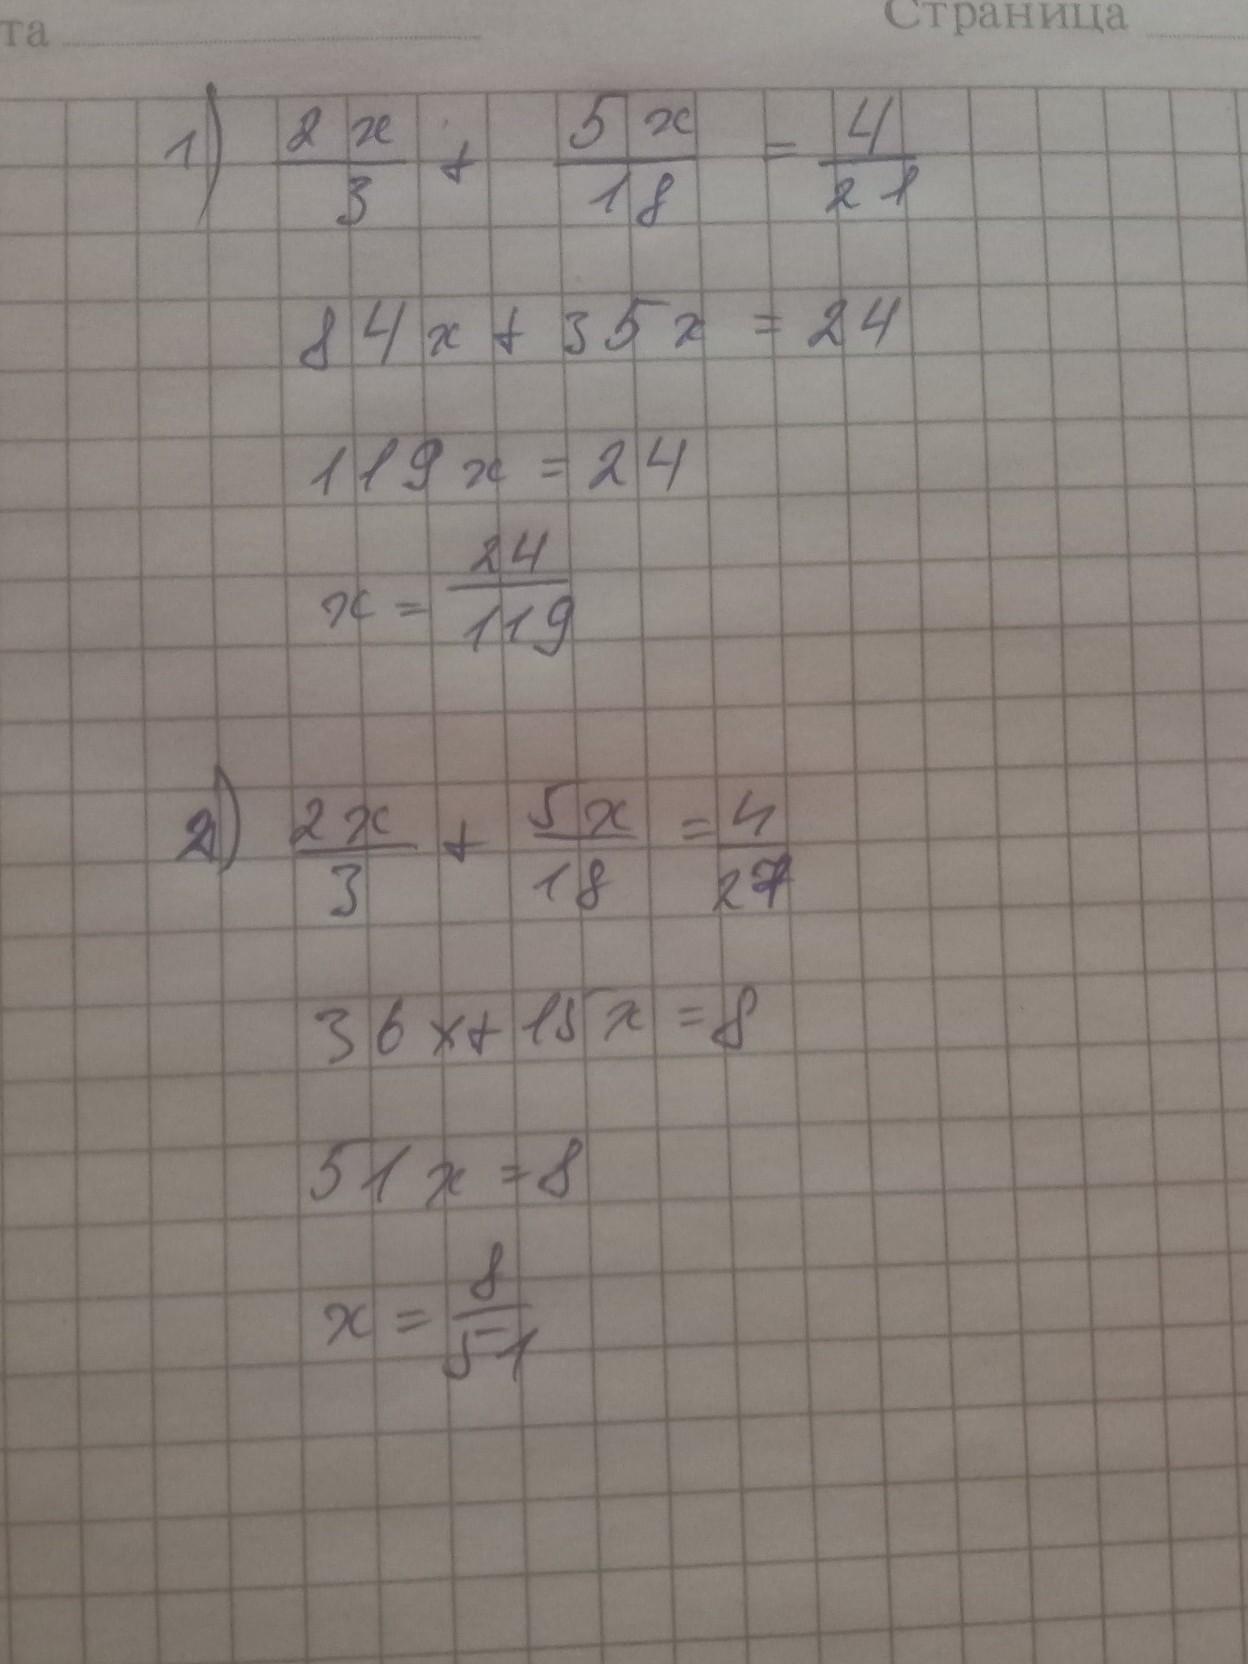 та Страница
1) 2x/3 + 5x/18 = 4/21
84x + 35x = 24
119x = 24
x = 24/119
2) 2x/3 + 5x/18 = 4/27
36x + 15x = 8
51x = 8
x = 8/51